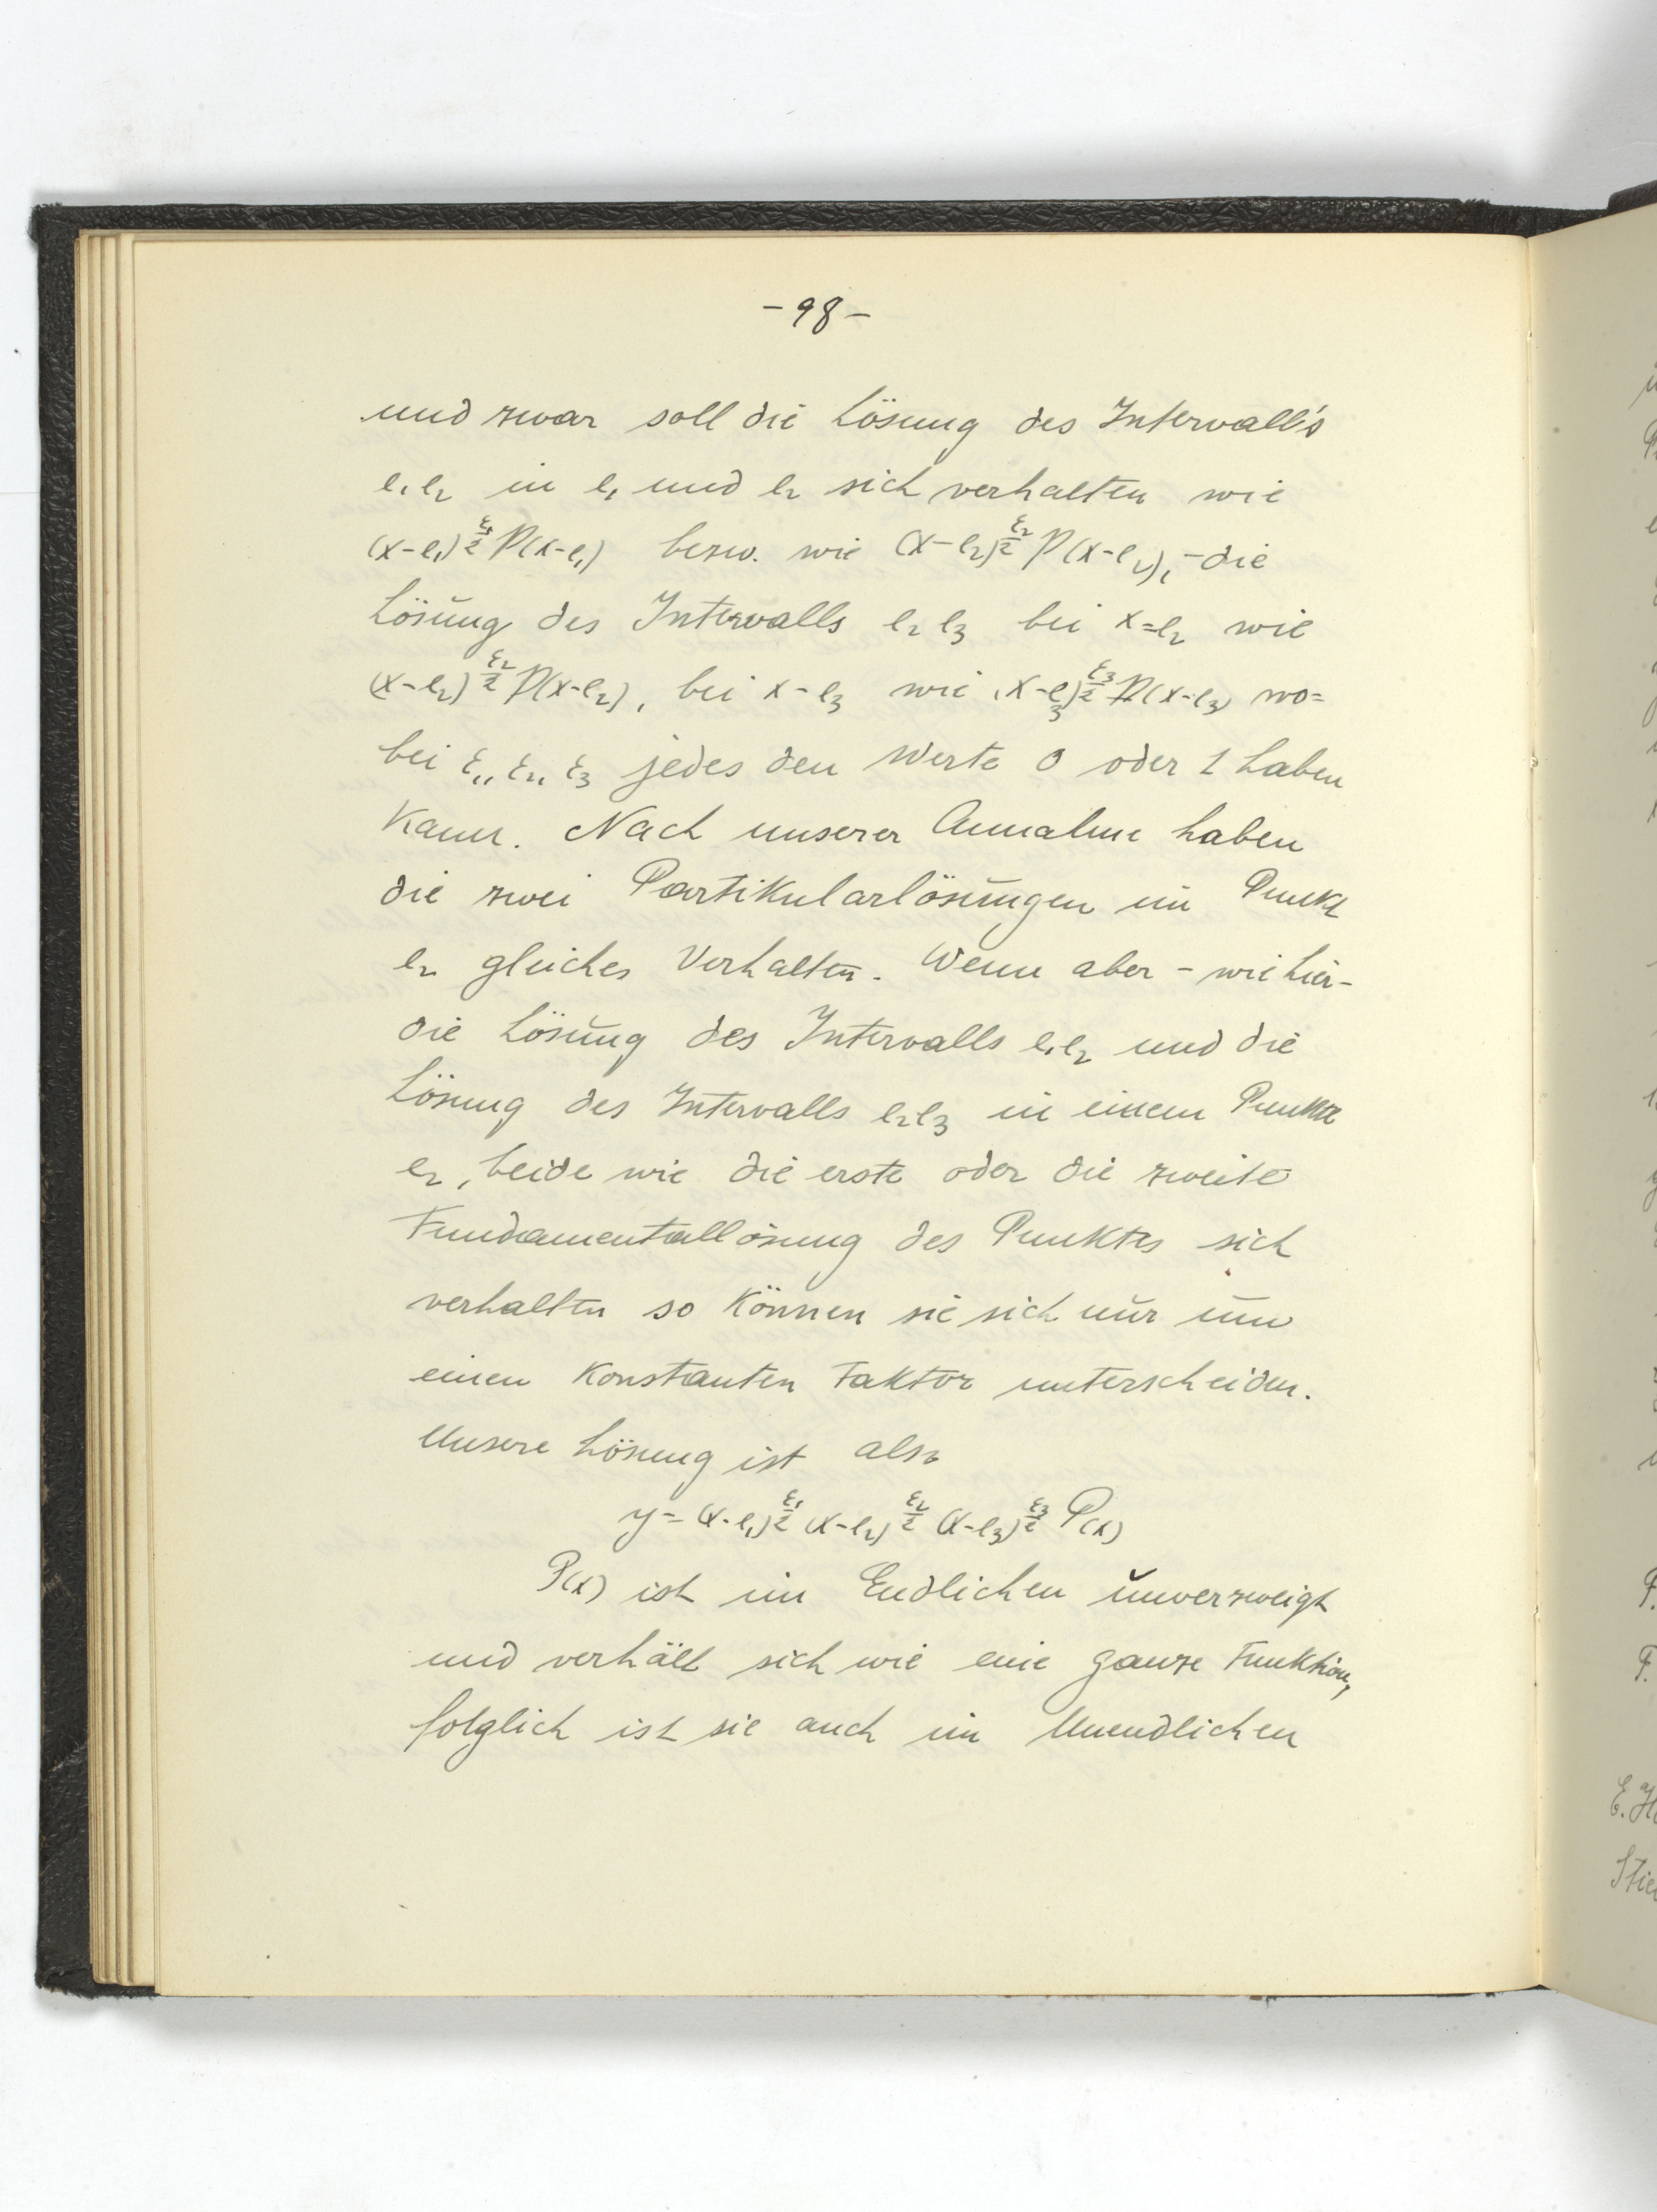 -98-
und zwar soll die Lösung des Intervall's
e₁e₂ in e₁ und e₂ sich verhalten wie
(x-e₁)^{ε₁/2} P(x-e₁) bezw. wie (x-e₂)^{ε₂/2} P(x-e₂), - die
Lösung des Intervalls e₂e₃ bei x=e₂ wie
(x-e₂)^{ε₂/2} P(x-e₂), bei x-e₃ wie (x-e₃)^{ε₃/2} P(x-e₃) wo=
bei ε₁, ε₂, ε₃ jedes den Werte 0 oder 1 haben
kann. Nach unserer Annahme haben
die zwei Partikularlösungen im Punkt
e₂ gleiches Verhalten. Wenn aber - wie hier -
die Lösung des Intervalls e₁e₂ und die
Lösung des Intervalls e₂e₃ in einem Punkte
e₂, beide wie die erste oder die zweite
Fundamentallösung des Punktes sich
verhalten so können sie sich nur um
einen konstanten Faktor unterscheiden.
Unsere Lösung ist also
y = (x-e₁)^{ε₁/2} (x-e₂)^{ε₂/2} (x-e₃)^{ε₃/2} P(x)
P(x) ist im Endlichen unverzweigt
und verhält sich wie eine ganze Funktion,
folglich ist sie auch im Unendlichen